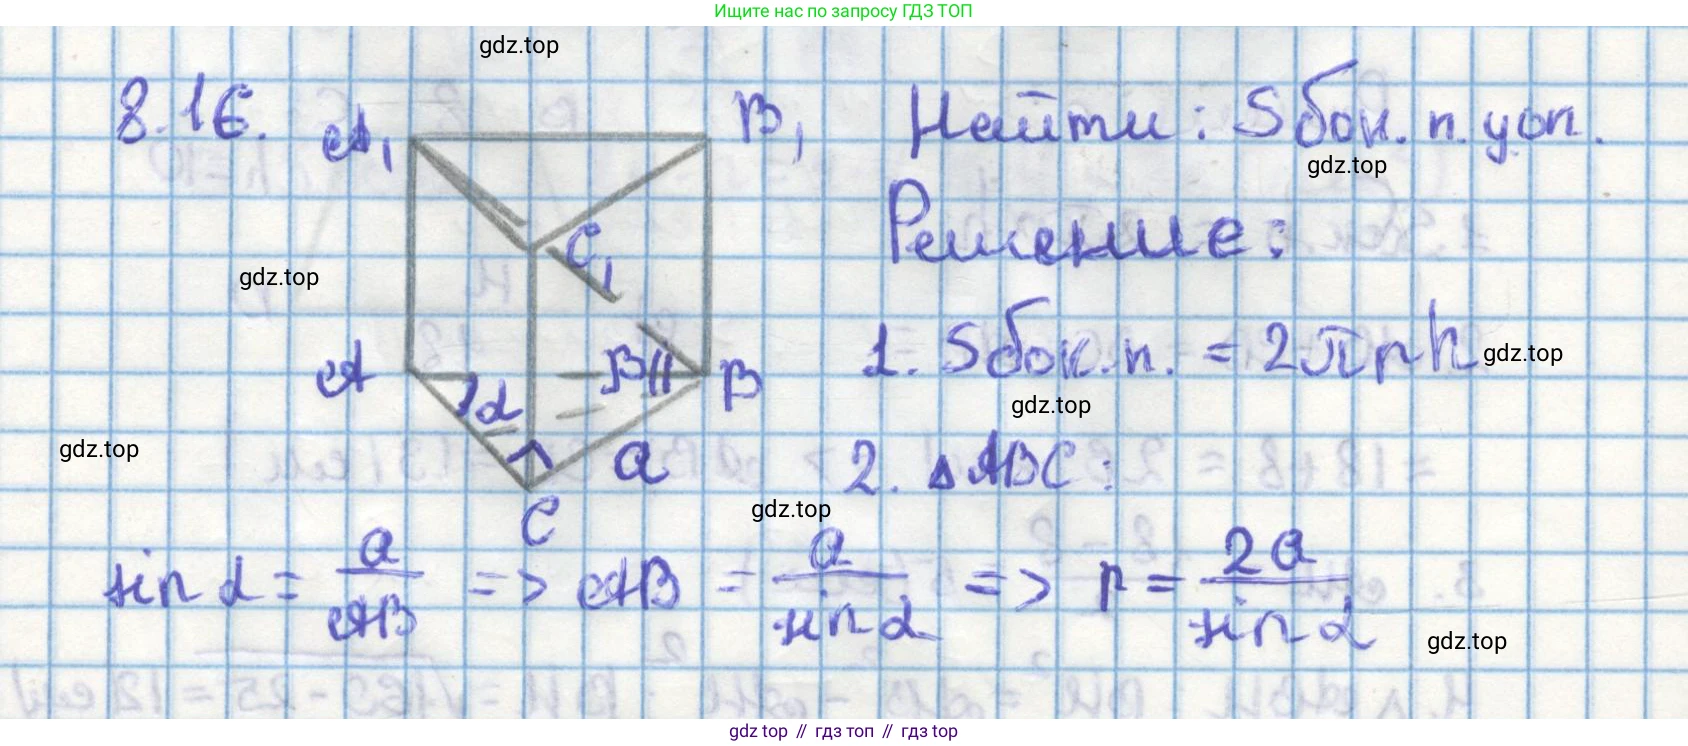 Ищите нас по запросу ГДЗ ТОП
gdz.top
8.16.
A₁
B₁
Найти: Sбок. п. у оп.
gdz.top
C₁
Решение:
gdz.top
A
α
β
B
1. Sбок. п. = 2πrh
gdz.top
gdz.top
gdz.top
a
C
2. ΔABC:
gdz.top
sin α = a/AB => AB = a/sin α => r = 2a/sin α
gdz.top
gdz top // гдз топ // гдз top